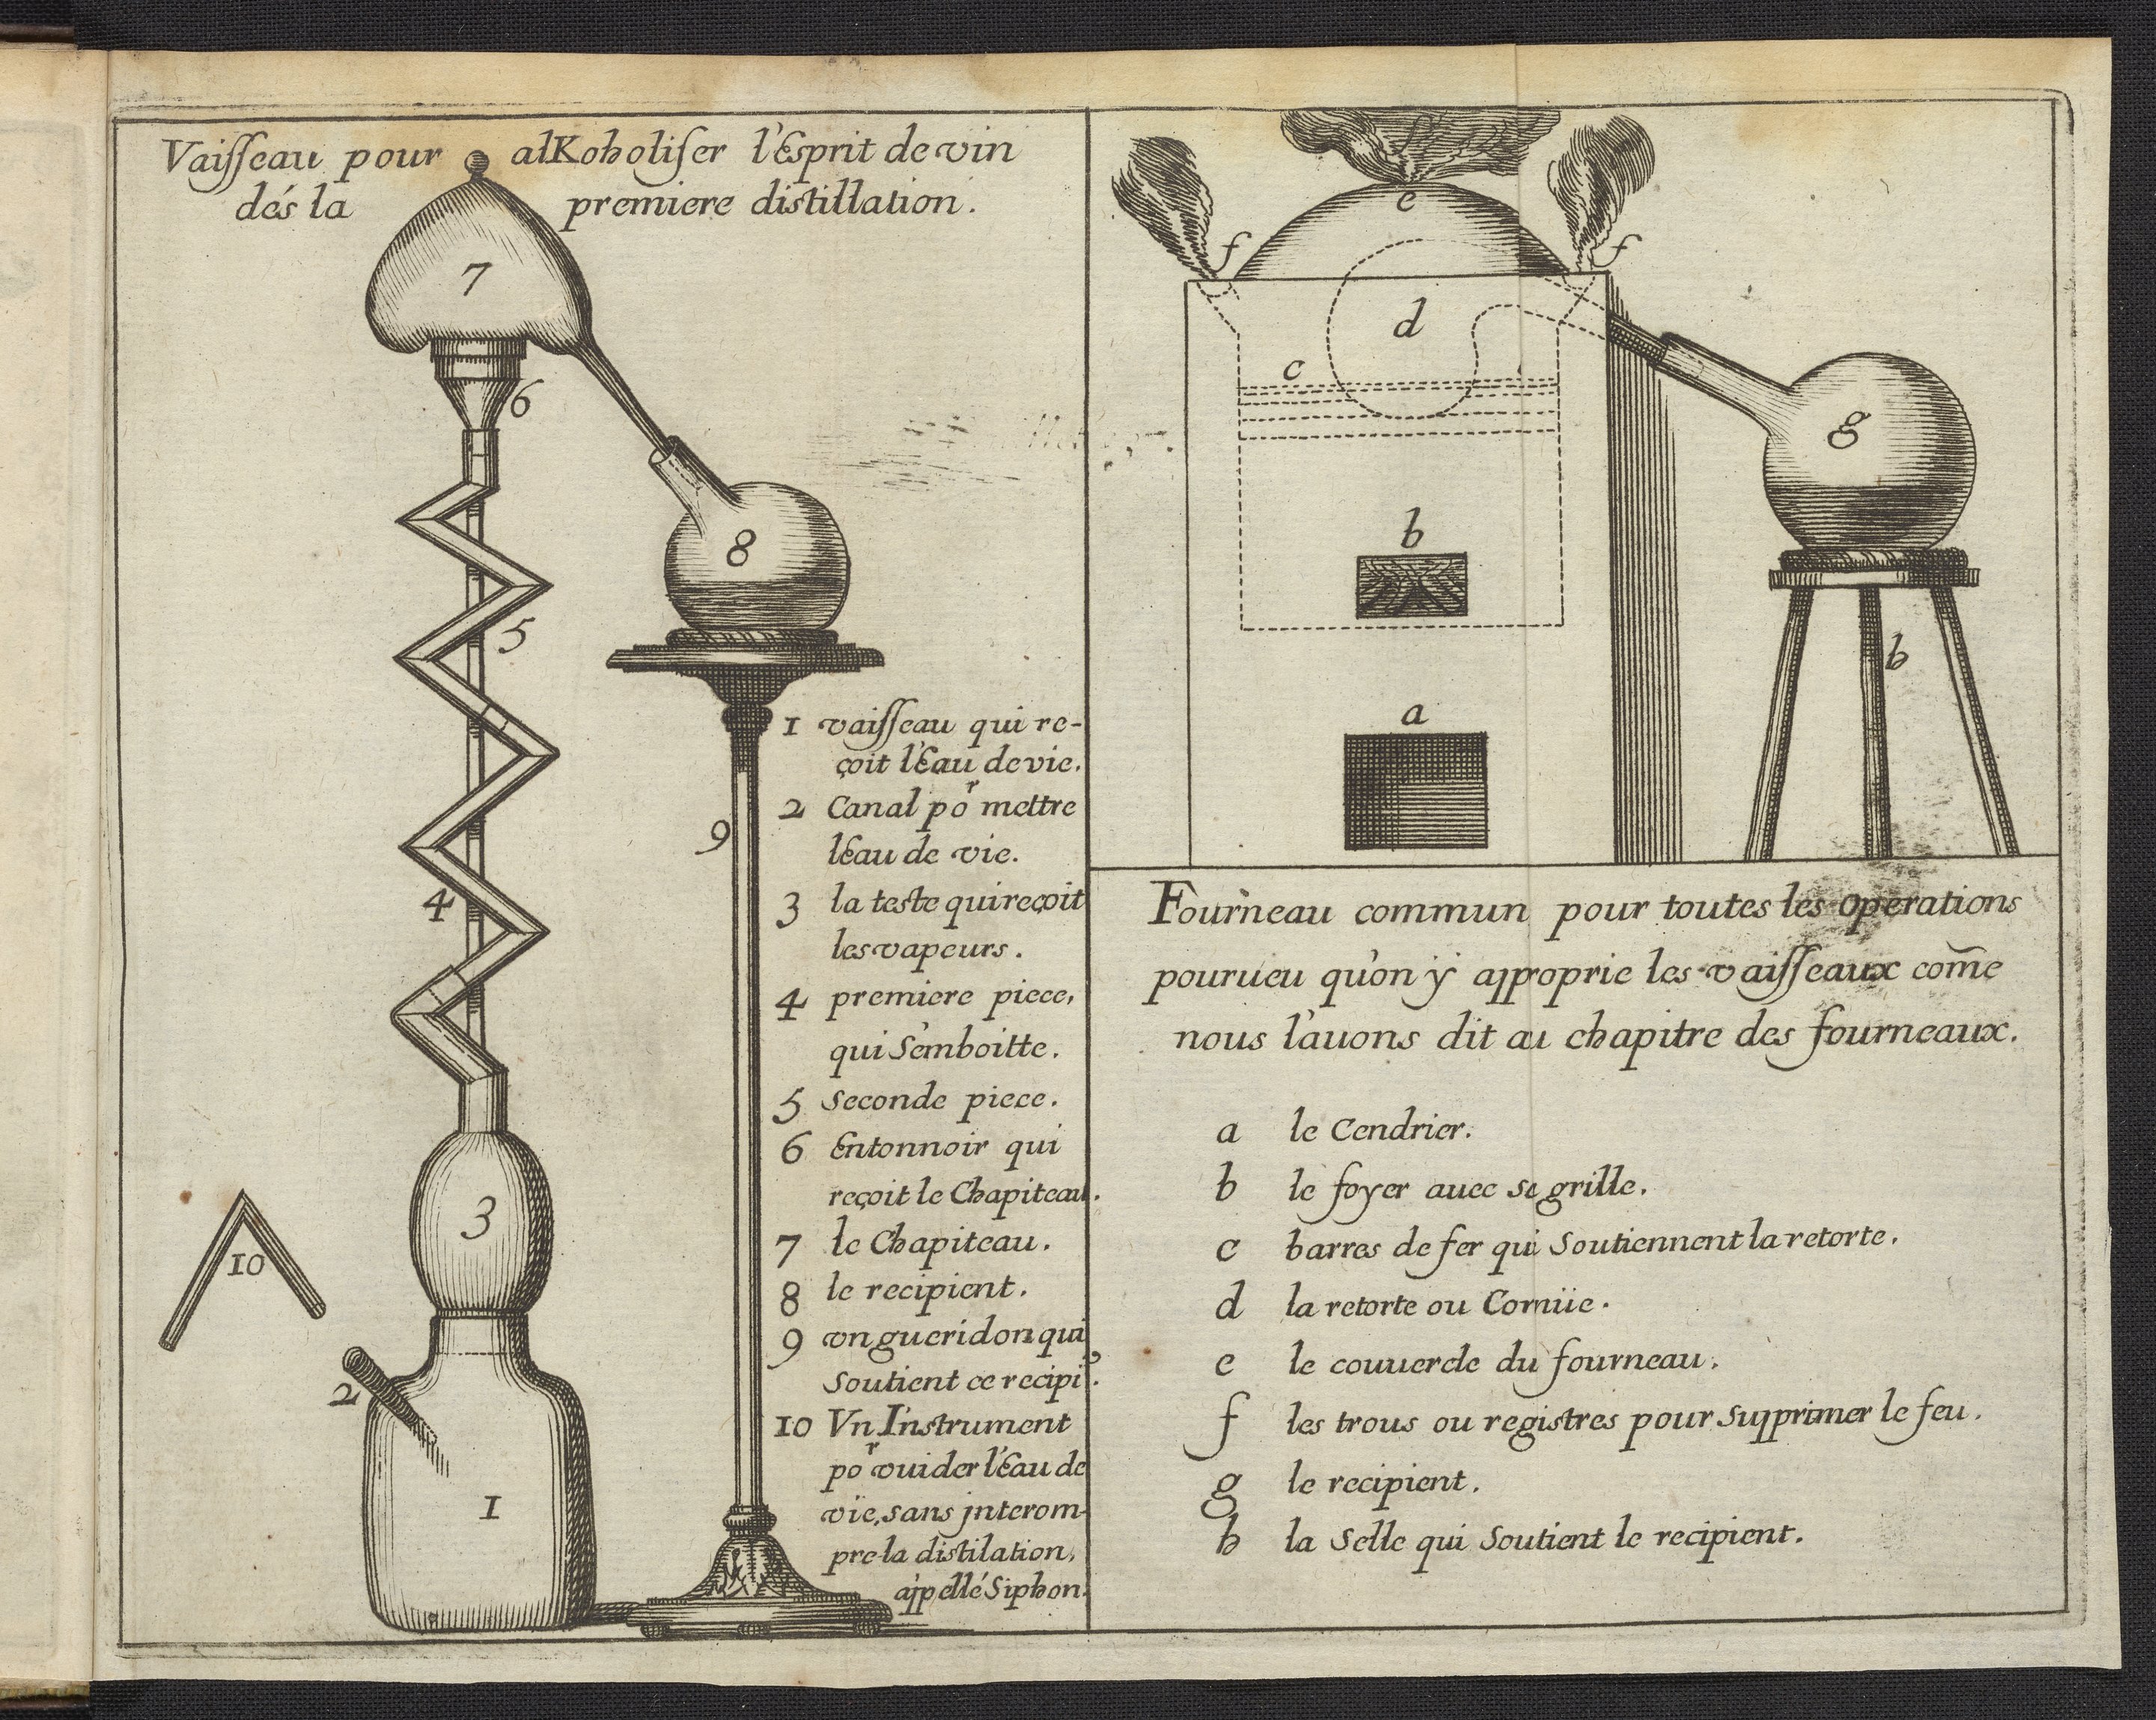 Vaisseau pour alKoholiser l'Esprit de vin
dés la premiere distillation.
7
6
8
5
9
4
3
10
2
1
1 vaisseau qui re-
çoit l'Eau de vie.
2 Canal po^r mettre
l'Eau de vie.
3 la teste qui reçoit
les vapeurs.
4 premiere piece,
qui s'emboitte.
5 Seconde piece.
6 Entonnoir qui
reçoit le Chapiteau.
7 le Chapiteau.
8 le recipient.
9 vn gueridon qui
Soutient ce recipi^?.
10 Vn Instrument
po^r vuider l'Eau de
vie, sans jnterom-
pre la distilation,
appellé Siphon.
e
f f
d
c
g
b
h
a
Fourneau commun pour toutes les operations
pourueu qu'on ÿ approprie les vaisseaux com̃e
nous l'auons dit au chapitre des fourneaux.
a le Cendrier.
b le foyer auec sa grille.
c barres de fer qui Soutiennent la retorte.
d la retorte ou Cornüe.
e le couuercle du fourneau.
f les trous ou registres pour supprimer le feu.
g le recipient.
h la Selle qui Soutient le recipient.